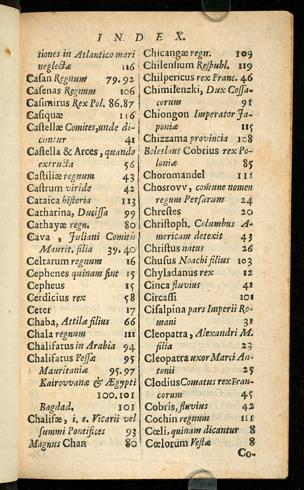 INDEX.
tiones in Atlantico mari
neglectæ 116
Casan Regnum 79.92
Casenas Regnum 106
Casimirus Rex Pol. 86.87
Casiquæ 116
Castellæ Comites, unde di-
cuntur 41
Castella & Arces, quando
extructa 56
Castiliæ regnum 43
Castrum viride 42
Cataica historia 113
Catharina, Ducissa 99
Cathayæ regn. 80
Cava, Juliani Comitis
Maurit. filia 39.40
Celtarum regnum 16
Cephenes quinam sint 15
Cepheus 15
Cerdicius rex 58
Ceter 17
Chaba, Attilæ filius 66
Chala regnum 111
Chalifatus in Arabia 94
Chalifatus Fessæ 95
Mauritaniæ 95.97
Kairovvanæ & Ægypti
100.101
Bagdad. 101
Chalifæ, i. e. Vicarii vel
summi Pontifices 93
Magnus Chan 80
Chicangæ regn. 109
Chilensium Respubl. 119
Chilpericus rex Franc. 46
Chimilenzki, Dux Cossa-
corum 91
Chiongon Imperator Ja-
poniæ 115
Chizzama provincia 108
Boleslaus Cobrius rex Po-
loniæ 85
Choromandel 111
Chosrovv, comune nomen
regum Persarum 24
Chrestes 20
Christoph. Columbus A-
mericam detexit 43
Christus natus 26
Chusus Noachi filius 103
Chyladanus rex 12
Cinca fluvius 41
Circassi 101
Cisalpina pars Imperii Ro-
mani 31
Cleopatra, Alexandri M.
filia 23
Cleopatra uxor Marci An-
tonii 25
Clodius Comatus rex Fran-
corum 45
Cobris, fluvius 42
Cochin regnum 111
Cœli, quinam dicantur 8
Cœlorum Vestæ 8
Co-